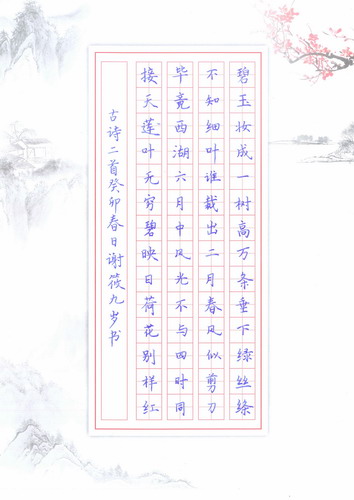 碧玉妆成一树高万条垂下绿丝绦
不知细叶谁裁出二月春风似剪刀
毕竟西湖六月中风光不与四时同
接天莲叶无穷碧映日荷花别样红
古诗二首癸卯春日谢筱九岁书